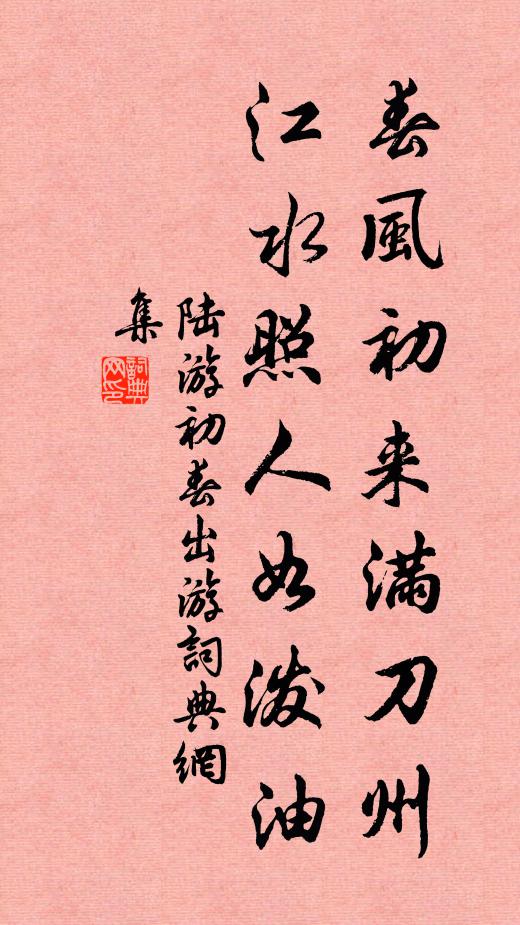 春風初来滿刀州
江水照人如潑油
陆游初春出游詞典網
集
詞典
网印